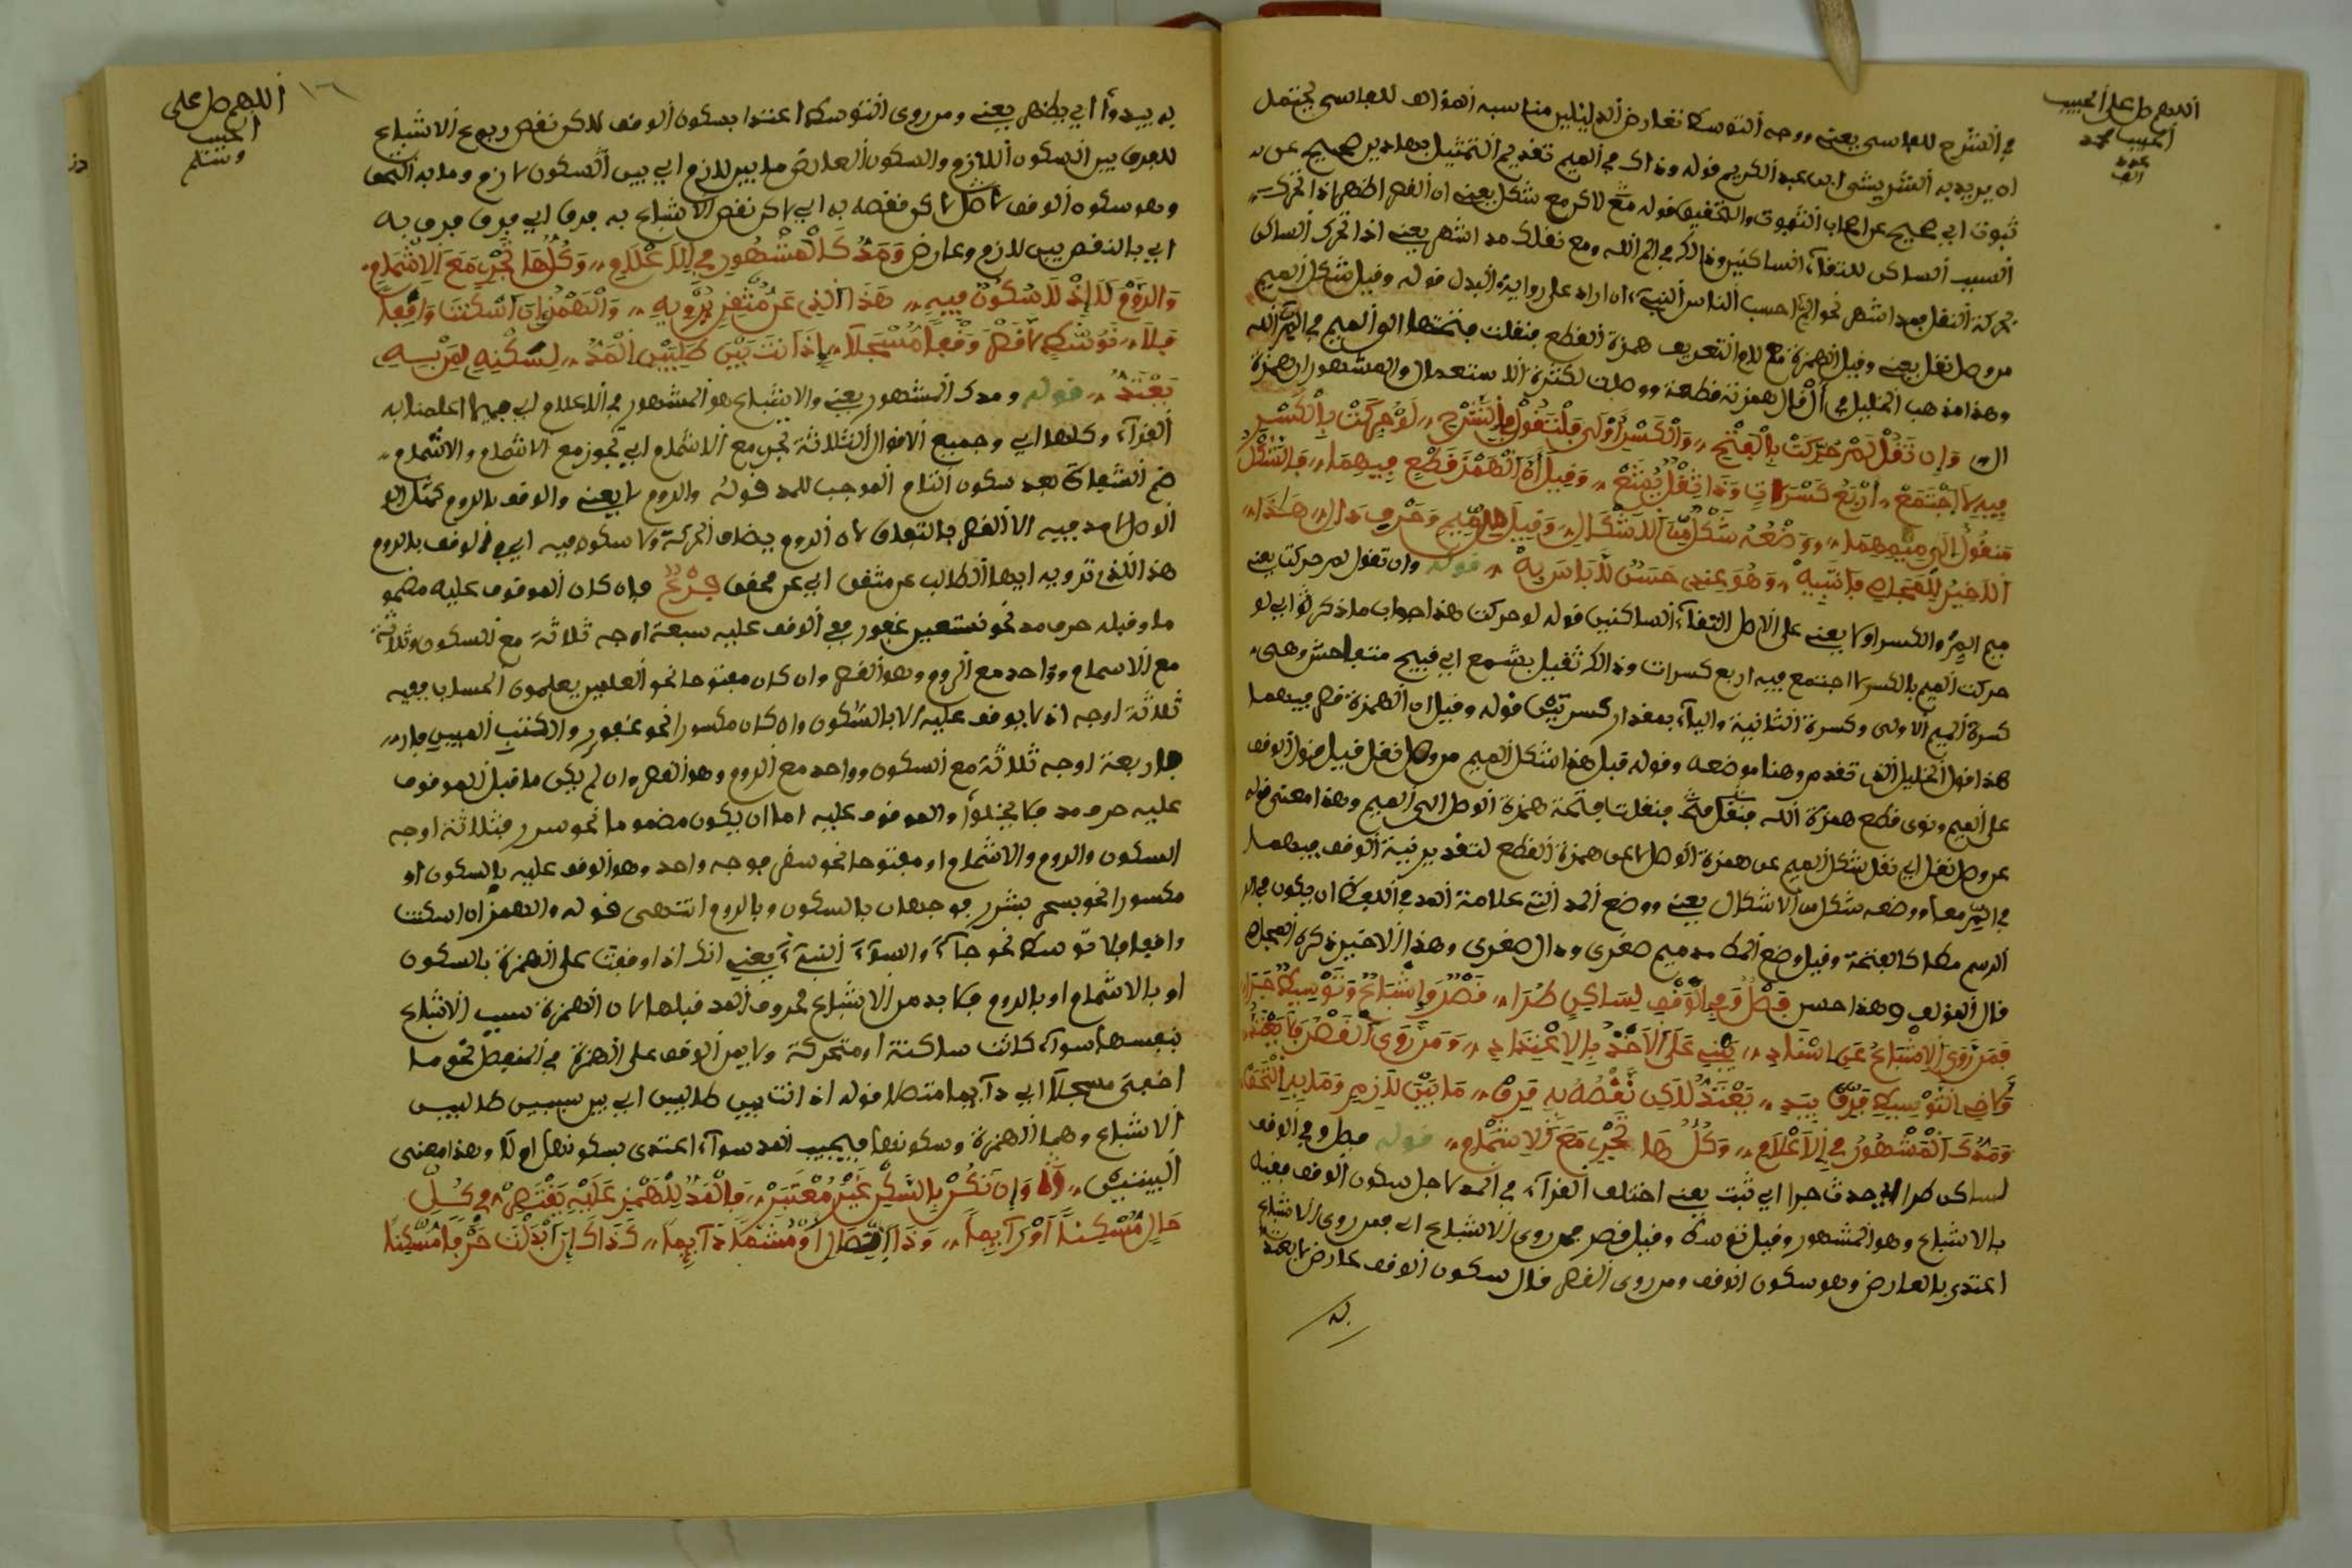 اللهم صل على الحبيب
الحبيب محمد
عدد
الف
في الشرح للفاسي يعني ووجه التوسط تعارض الدليلين مناسبه الهوالف للفاسي يحتمل
ان يريد به الشريشي ابن عبد الكريم قوله وذاك في الميم تقديم التمثيل بهاذين صحيح عن
ثبوت اي صحيح عن اصحاب الثبوت والتحقيق قوله مع لاكن مع شكل يعني ان القصر اظهر اذا تحرك
السبب الساكن للتقاء الساكنين وذالك في الم الله ومع نقلك مد اشهر يعني اذا تحرك الساكن
بحركة النقل فمد اشهر نحو الم احسب الناس النبيء ان اراد على رواية البدل قوله وقيل شكل الميم
من وصل نقل يعني وقيل الهمزة مع لام التعريف همزة القطع فنقلت فتحتها الى الميم في الم الله
وهذا مذهب الخليل في ال قال همزته قطعية ووصلت لكثرة الاستعمال والمشهور ان همزة
ال وَإن تَقُلْ لِمْ حُرِّكَتْ بِالْفَتْحِ وَالْكَسْرُ أَوْلَى فَلْتَقُولْ فِي الشَّرْحِ لَوْ حُرِّكَتْ بِالْكَسْرِ
فِيهِ لَاجْتَمَعْ أَرْبَعُ كَسْرَاتٍ وَذَا ثِقْلٌ يُمْنَعْ وَقِيلَ أَنَّ الْهَمْزَ قَطْعٍ فِيهِمَا فَالشَّكْلُ
مَنقُولٌ إِلَى مِيمِهِمَا وَوَضْعُهُ شَكْلٌ مِّنَ الْأَشْكَالِ وَقِيلَ مِيمٍ وَحَرْفِ دَالِ هَذَا
الْأَخِيرُ لِلْمَجَاصِ فَانتَبِهْ وَهُوَ عِندِي حَسَنٌ لَا بَاسَ بِهْ قوله وان تقول لم حركت يعني
ميم الم والكسر اولا يعني على الاصل التقاء الساكنين قوله لو حركت هذا جواب ما ذكر اي لو
حركت الميم بالكسر لاجتمع فيه اربع كسرات وذالك ثقيل بشمع اي قبيح متفاحش وهي
كسرة الميم الاولى وكسرة الثانية والياء بمقدار كسرتين قوله وقيل ان الهمزة قطع فيهما
هذا قول الخليل الذي تقدم وهنا موضعه وقوله قبل هذا شكل الميم من وصل نقل قيل ينوي الوقف
على الميم ونوى قطع همزة الله فنقلت فتحة همزة الوصل الى الميم وهذا معنى قوله
عن وصل نقل اي نقل شكل الميم عن همزة الوصل لا عن همزة القطع لتقدير نية الوقف فيهما
في الم معا ووضعه شكل من الاشكال يعني ووضع المد التي علامة المد في اللوح ان يكون في
الرسم مطا كالفتحة وقيل وضع المط مد ميم صغرى ودال صغرى وهذا الاخير ذكره المجاص
قال المولف وهذا حسن فَصْلٌ وَفِي الْوَقْفِ لِسَاكِنٍ طَرَا قَصْرٌ وَإِشْبَاعٌ وَتَوْسِيطٌ جَرَا
فَمَن رَوَى الْإِشْبَاعَ عَن اسْنَادِ يَبْنِي عَلَى الْأَخْذِ بِالِاعْتِدَادِ وَمَن رَوَى الْقَصْرَ فَلَا يَعْتَدُّ
وَفِي التَّوْسِيطِ فَرْقٌ يَبْدُ يَعْتَدُّ لَاكِن نَّقْصُهُ بِهِ فَرْقٌ مَا بَيْنَ لَازِمٍ وَمَا بِهِ الْتَحَقْ
وَمَدُّكَ الْمَشْهُورُ فِي الْأَعْلَامِ وَكُلُّهَا تَجْرِي مَعَ الْإِشْمَامِ قوله فصل وفي الوقف
لساكن طرا اي حدث جرا اي ثبت يعني اختلف القراء في المد لاجل سكون الوقف فقيل
بالاشباع وهو المشهور وقيل توسط وقيل قصر فمن روى الاشباع اي فمن روى الاشباع
اعتدى بالعارض وهو سكون الوقف ومن روى القصر قال سكون الوقف عارض لا يعتد
به
اللهم صل على
الحبيب
وسلم
١٦
به يبدوا اي يظهر يعني ومن روى التوسط اعتدا بسكون الوقف لاكن نقص ربع الاشباع
للفرق بين السكون اللازم والسكون العارض ما بين لازم اي بين السكون لازم وما به التحق
وهو سكون الوقف لاكن نقصه به اي لاكن نقص الاشباع به فرق اي فرق فرق به
اي بالنقص بين لازم وعارض وَمَدُّكَ الْمَشْهُورُ فِي الْأَعْلَامِ وَكُلُّهَا تَجْرِي مَعَ الْإِشْمَامِ
وَالرَّوْمُ لَا إِذْ لَا سُكُونٌ فِيهِ هَذَا الَّذِي عَن مُّتْقِنٍ تَرْوِيهِ وَالْهَمْزُ إِنْ أَسْكَنتَ وَاقِفًا
فَلَا تَوَسُّطٌ لَا قَصْرَ وَقْفًا مُسْجَلًا إِذْ أَنتَ بَيْنَ طَالِبَيْنِ الْمَدَّ لِسَكْنِهِ لِقُرْبِهِ
يَعْتَدُّ قوله ومدك المشهور يعني والاشباع هو المشهور في الاعلام اي فيما اعلمنا به
القراء وكلها اي وجميع الاقوال الثلاثة تجري مع الاشمام اي تجوز مع الاشمام والاشمام
ضم الشفاة بعد سكون التام الموجب للمد قوله والروم لا يعني والوقف بالروم كمثل الو
الوصل لا مد فيه الا القصر بالتفاق لان الروم بيضاف الحركة ولا سكون فيه اي في الوقف بالروم
هذا الذي ترويه ايها الطالب عن متقن اي عن محقق فَرْعٌ فان كان الموقوف عليه مضمو
ما وقبله حرف مد نحو نستعين غفور ففي الوقف عليه سبعة اوجه ثلاثة مع السكون وثلاثة
مع الاشمام وواحد مع الروم وهو القصر وان كان مفتوحا نحو العلمين يعلمون الحساب ففيه
ثلاثة اوجه اذ لا يوقف عليه الا بالسكون وان كان مكسورا نحو غفور والكتب المبين
فاربعة اوجه ثلاثة مع السكون وواحد مع الروم وهو القصر وان لم يكن ما قبل الموقوف
عليه حرف مد فلا يخلوا والموقوف عليه اما ان يكون مضموما نحو سرر فثلاثة اوجه
السكون والروم والاشمام او مفتوحا نحو سقر فوجه واحد وهو الوقف عليه بالسكون او
مكسورا نحو بسحر بشرر فوجهان بالسكون وبالروم انتهى قوله والهمز ان اسكنت
واقفا فلا توسط نحو جاء والسوء النبيء يعني انك اذا وقفت على الهمزة بالسكون
او بالاشمام او بالروم فلا بد من الاشباع لحروف المد قبلها لان الهمزة سبب الاشباع
بنفسها سواء كانت ساكنة او متحركة ولا بين الوقف على الهمزة في المنفصل نحو ما
اخفى مسجلا اي دآئما متصلا قوله اذ انت بين طالبين اي بين سببين طالبين
الاشباع وهما الهمزة وسكونها فيجب المد سواء اعتدى بسكونها او لا وهذا معنى
البيتين وَإن تَكُنْ بِالسَّكْنِ غَيْرُ مُعْتَبَرْ فَالْمَدُّ لِلْهَمْزِ عَلَيْهِ يَقْتَصِرْ فِي كُلِّ
حَالٍ مُسْكِنًا أَوْ رَآئِمًا وَذَا اتِّصَالٍ أَوْ مُشِمًّا دَآئِمًا كَذَاكَ إِنْ أَبْدَلْتَ حَرْفًا مُسْكِنًا